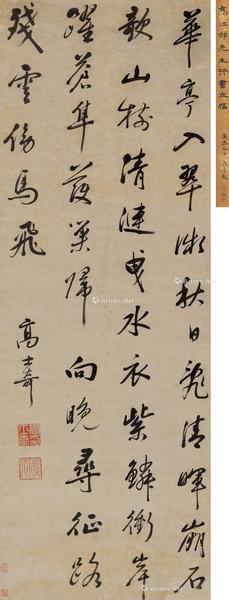 高江邨先生行書立幅
華亭入翠微秋日亂清暉崩石
欹山樹清漣曳水衣紫鱗衝岸
躍蒼隼護巢歸向晚尋征路
殘雲傍馬飛
高士奇